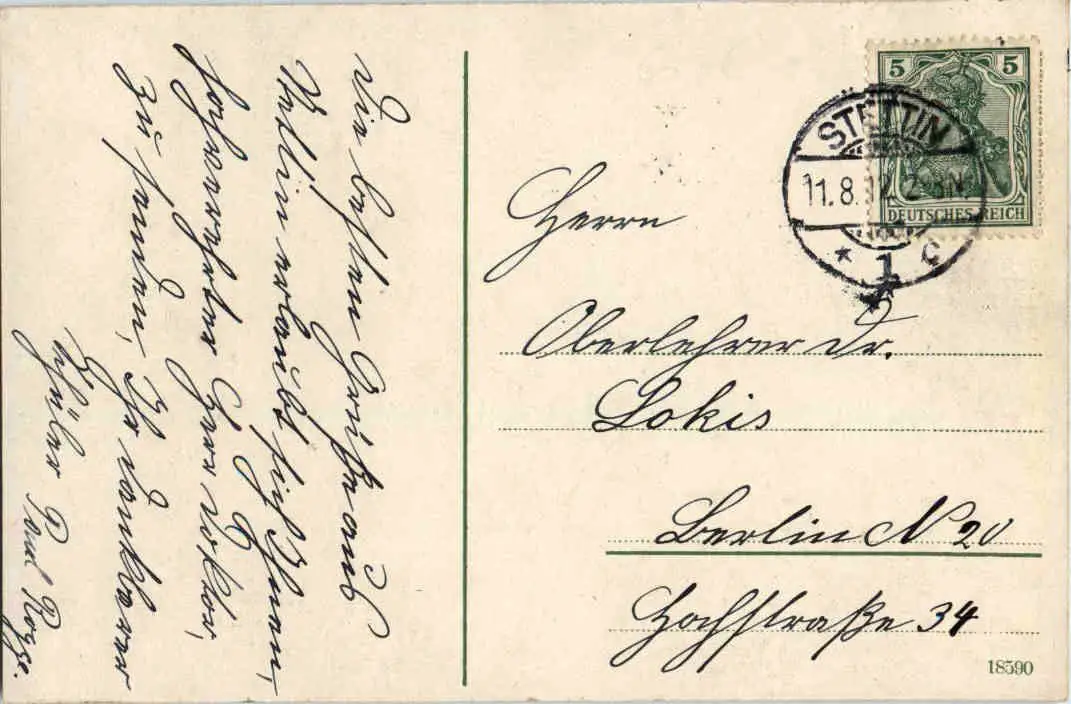 Die besten Grüße aus
Stettin erlaubt sich Ihnen,
sehr verehrter Herr Doktor,
zu senden, Ihr dankbarer
Schüler Paul Rogge.
5 5
DEUTSCHES REICH
STETTIN
11.8.12. 2-3N
* 1 c
Herrn
Oberlehrer Dr.
Lokis
Berlin N 20
Hochstraße 34
18590